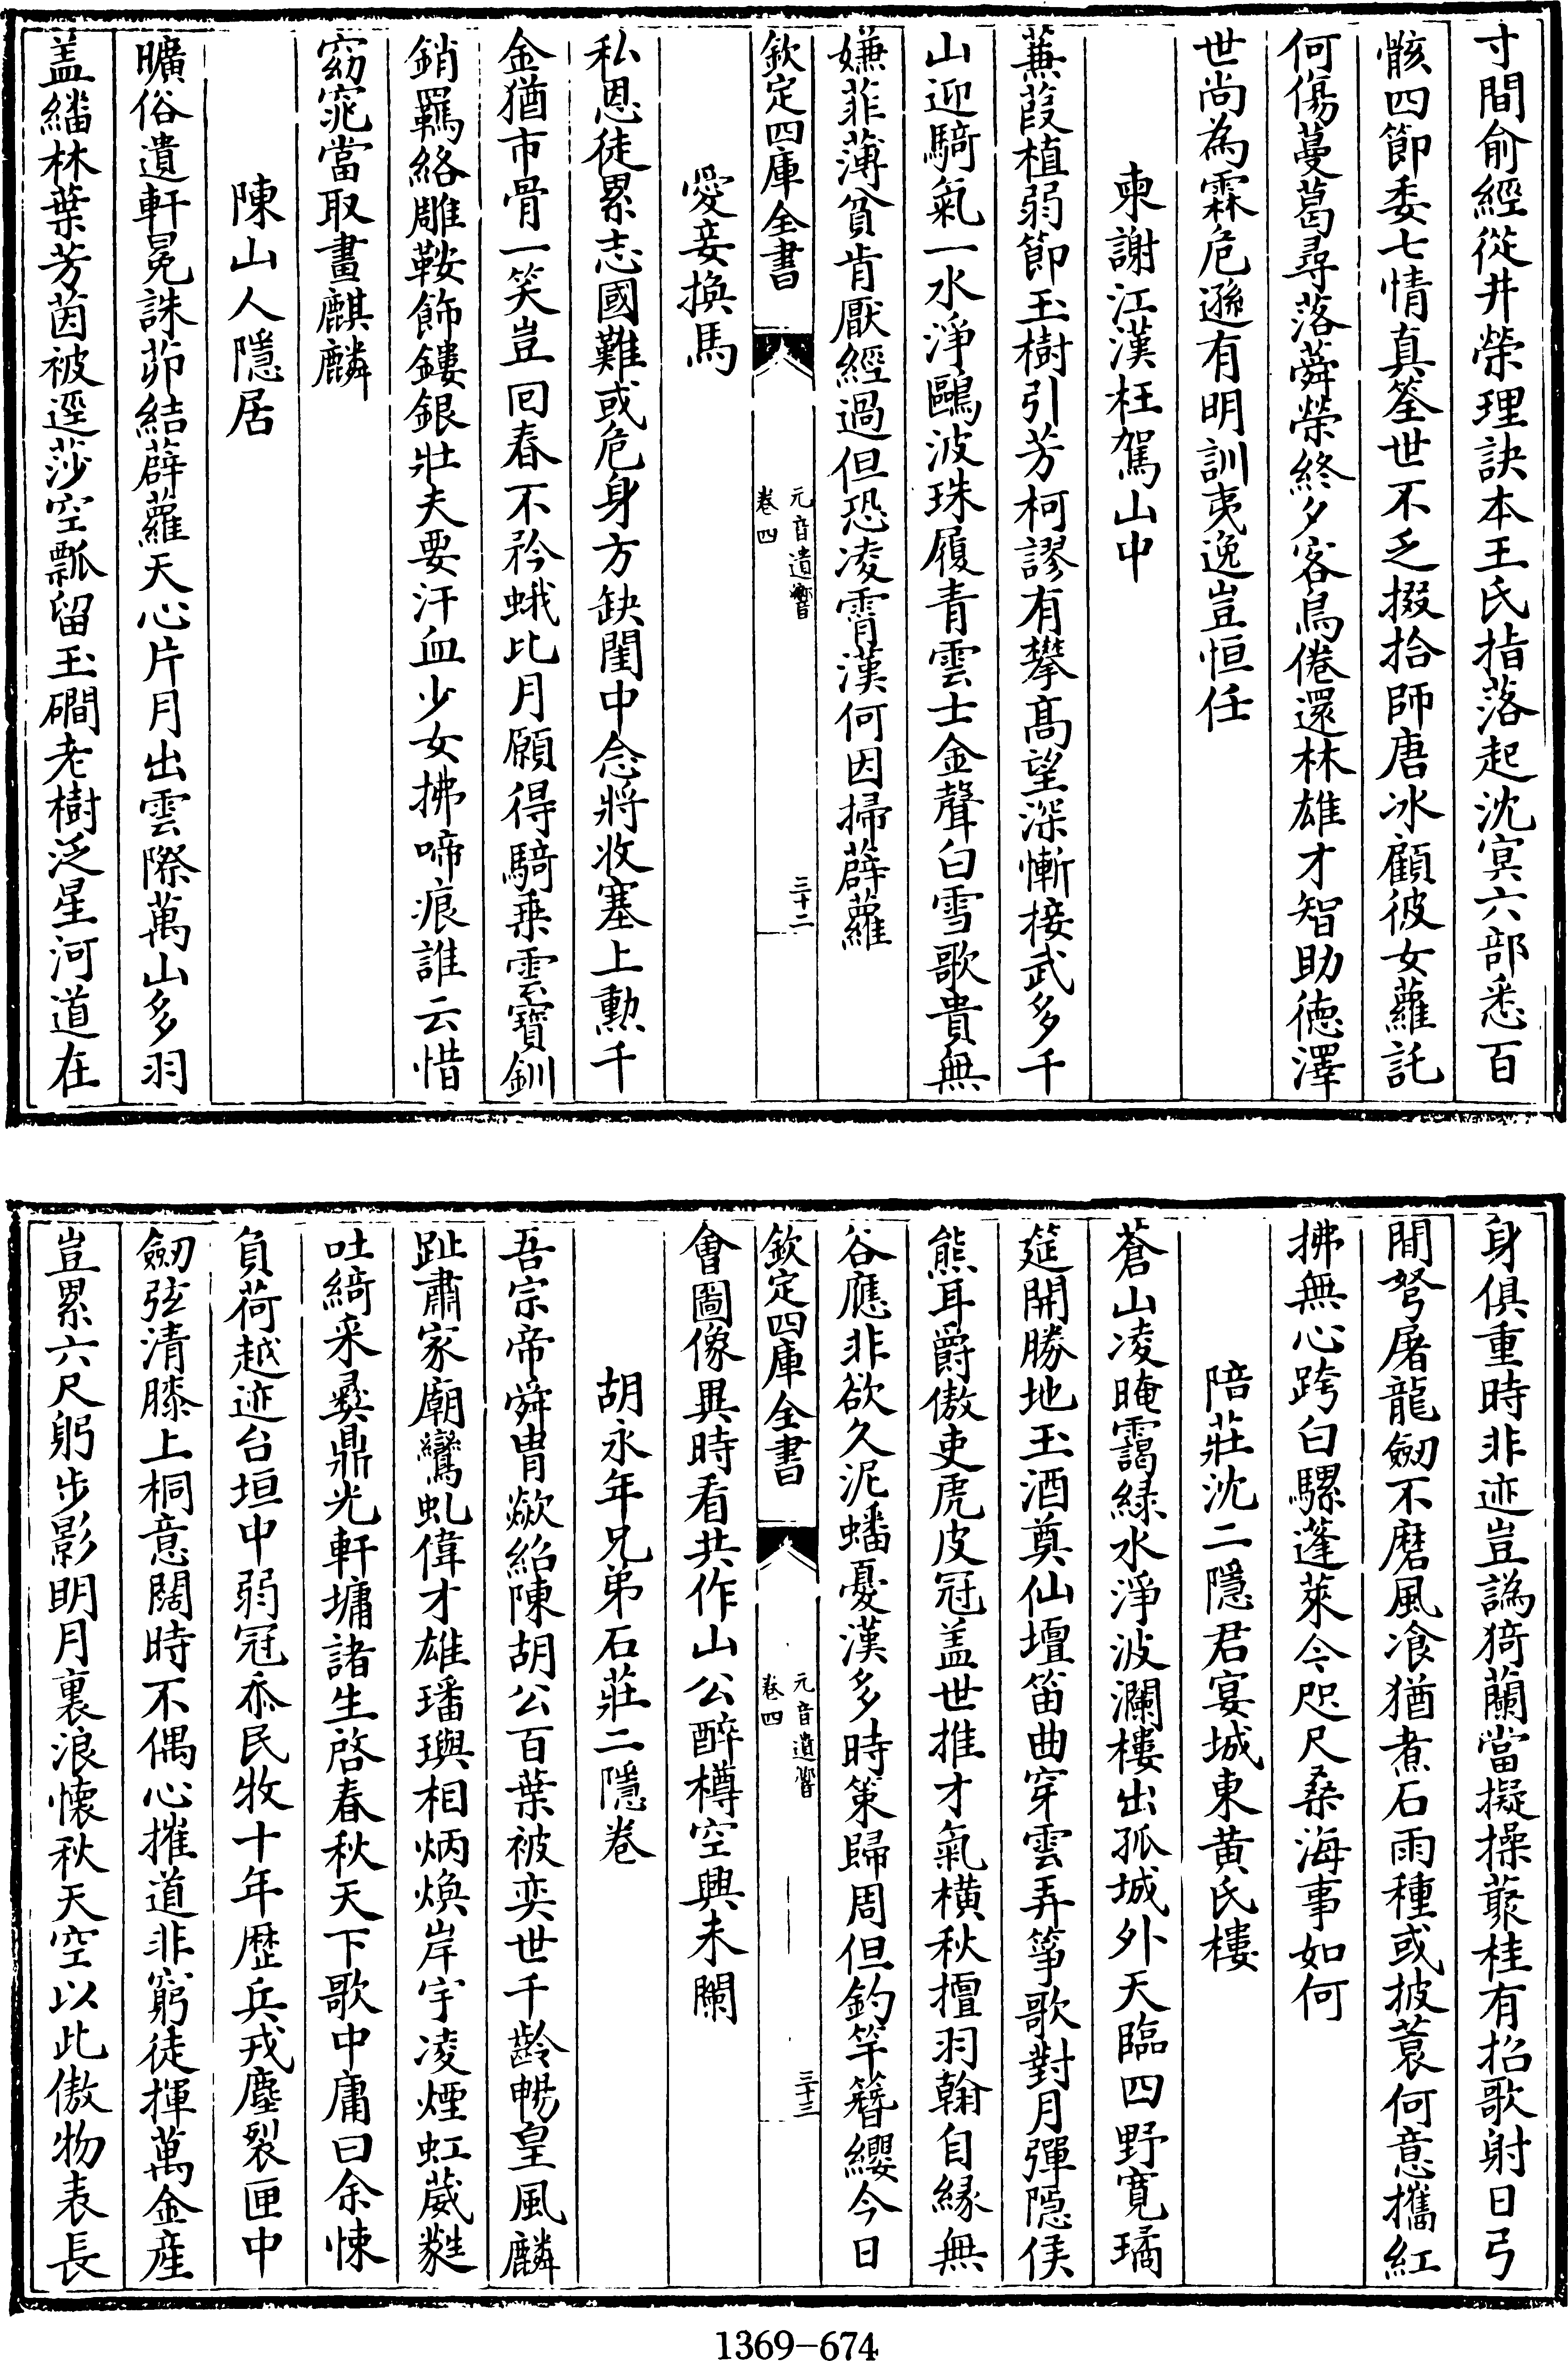 寸間俞經從井榮理訣本王氏指落起沈㝠六部悉百
骸四節委七情真筌世不乏掇拾師唐冰顧彼女蘿託
何傷蔓葛尋落蕣榮終夕客鳥倦還林雄才智助徳澤
世尚為霖危遜有明訓夷逸豈恒任
柬謝江漢枉駕山中
蒹葭植弱節玉樹引芳柯謬有攀髙望深慚接武多千
山迎騎氣一水淨鷗波珠履青雲士金聲白雪歌貴無
嫌菲薄貧肯厭經過但恐凌霄漢何因掃薜蘿
欽定四庫全書
元音遺響
卷四
三十二
愛妾換馬
私恩徒累志國難或危身方缺閨中念將收塞上勲千
金猶市骨一笑豈回春不矜蛾比月願得騎乗雲寶釧
銷羈絡雕鞍飾鏤銀壯夫要汗血少女拂啼痕誰云惜
窈窕當取畫麒麟
陳山人隱居
曠俗遺軒冕誅茆結薜蘿天心片月出雲際萬山多羽
盖繙林葉芳茵被逕莎空瓢留玉磵老樹泛星河道在
身俱重時非迹豈譌猗蘭當擬操叢桂有招歌射日弓
閒弩屠龍劒不磨風飡猶煮石雨種或披蓑何意攜紅
拂無心跨白騾蓬萊今咫尺桑海事如何
陪莊沈二隱君宴城東黄氏樓
蒼山凌晻靄緑水淨波瀾樓出孤城外天臨四野寛璚
筵開勝地玉酒奠仙壇笛曲穿雲弄箏歌對月彈隠侯
熊耳爵傲吏虎皮冠盖世推才氣橫秋擅羽翰自縁無
谷應非欲久泥蟠憂漢多時策歸周但釣竿簪纓今日
欽定四庫全書
元音遺響
卷四
三十三
會圖像異時看共作山公醉樽空興未闌
胡永年兄弟石莊二隱卷
吾宗帝舜胄歘紹陳胡公百葉被奕世千齡暢皇風麟
趾肅家廟鸞虬偉才雄璠璵相炳煥岸宇凌煙虹葳蕤
吐綺采彝鼎光軒墉諸生啓春秋天下歌中庸曰余悚
負荷越迹台垣中弱冠忝民牧十年歴兵戎塵裂匣中
劒弦清膝上桐意闊時不偶心摧道非窮徒揮萬金産
豈累六尺躬步影明月裏浪懷秋天空以此傲物表長
1369-674